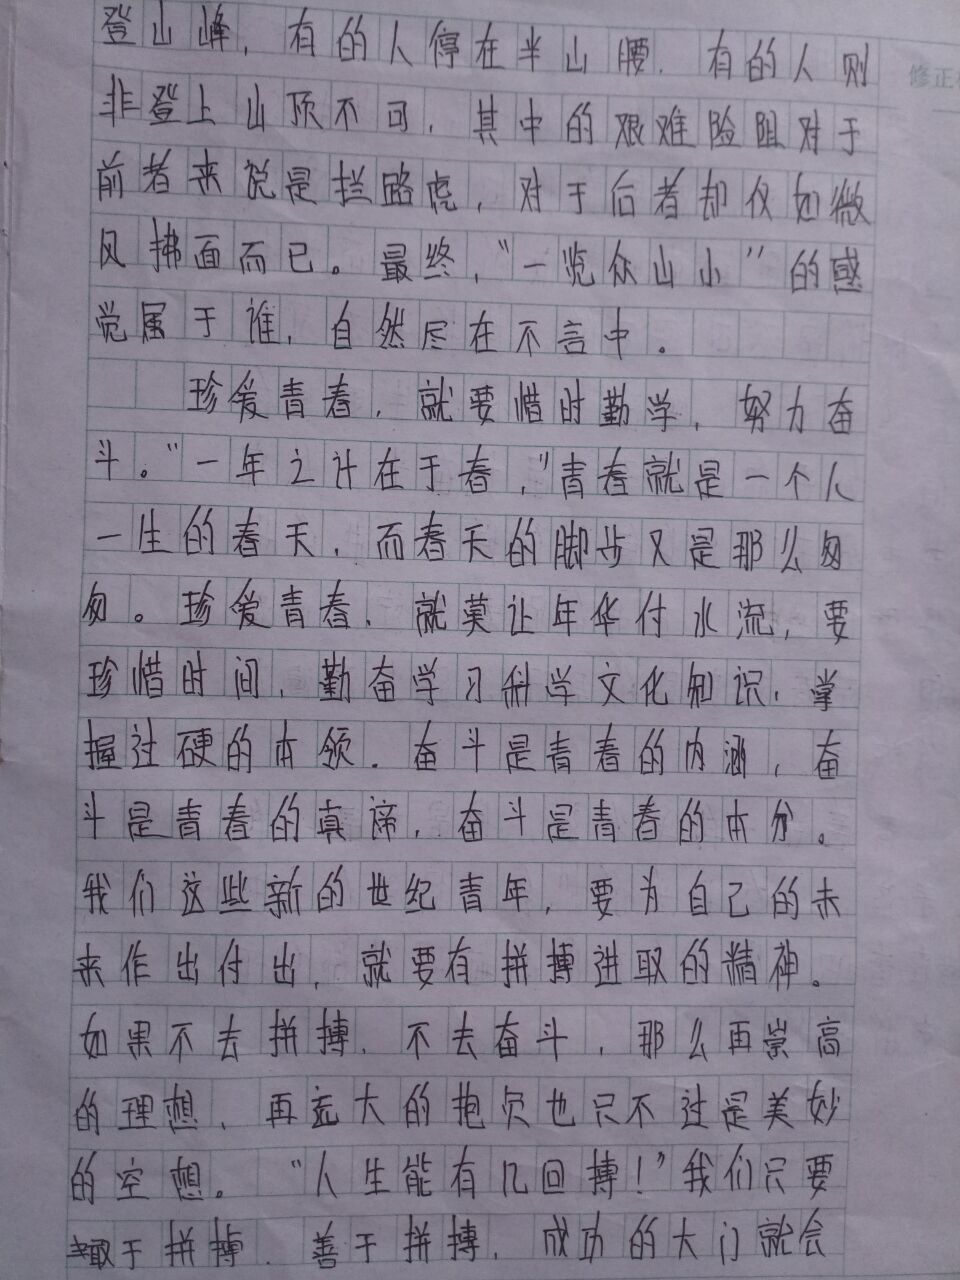 登山峰，有的人停在半山腰，有的人则
修正
非登上山顶不可，其中的艰难险阻对于
前者来说是拦路虎，对于后者却仅如微
风拂面而已。最终，“一览众山小”的感
觉属于谁，自然尽在不言中。
珍爱青春，就要惜时勤学，努力奋
斗。“一年之计在于春，”青春就是一个人
一生的春天，而春天的脚步又是那么匆
匆。珍爱青春，就莫让年华付水流，要
珍惜时间，勤奋学习科学文化知识，掌
握过硬的本领。奋斗是青春的内涵，奋
斗是青春的真谛，奋斗是青春的本分。
我们这些新的世纪青年，要为自己的未
来作出付出，就要有拼搏进取的精神。
如果不去拼搏，不去奋斗，那么再崇高
的理想，再远大的抱负也只不过是美妙
的空想。“人生能有几回搏！”我们只要
敢于拼搏，善于拼搏，成功的大门就会